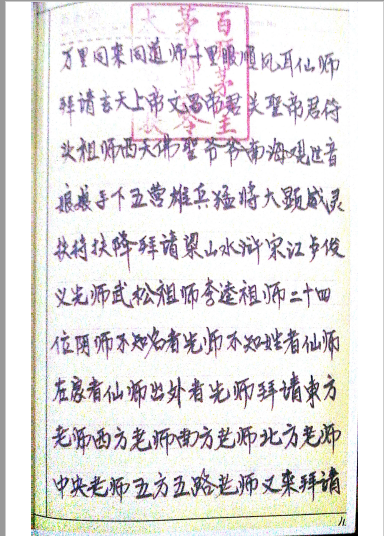 万里回来问道师千里眼顺风耳仙师
拜请玄天上帝文昌帝君关圣帝君符
头祖师西天佛圣爷爷南海观世音
娘娘手下五营雄兵猛将大显威灵
扶持扶降拜请梁山水浒宋江卢俊
义先师武松祖师李逵祖师二十四
位阴师不知名者先师不知姓者仙师
在处者仙师出外者先师拜请东方
老师西方老师南方老师北方老师
中央老师五方五路老师又来拜请